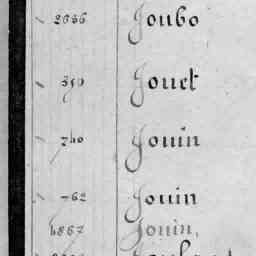 2636 Joubo
350 Jouet
740 Jouin
762 Jouin
4867 Jouin,